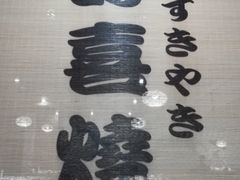 すきやき
喜燒